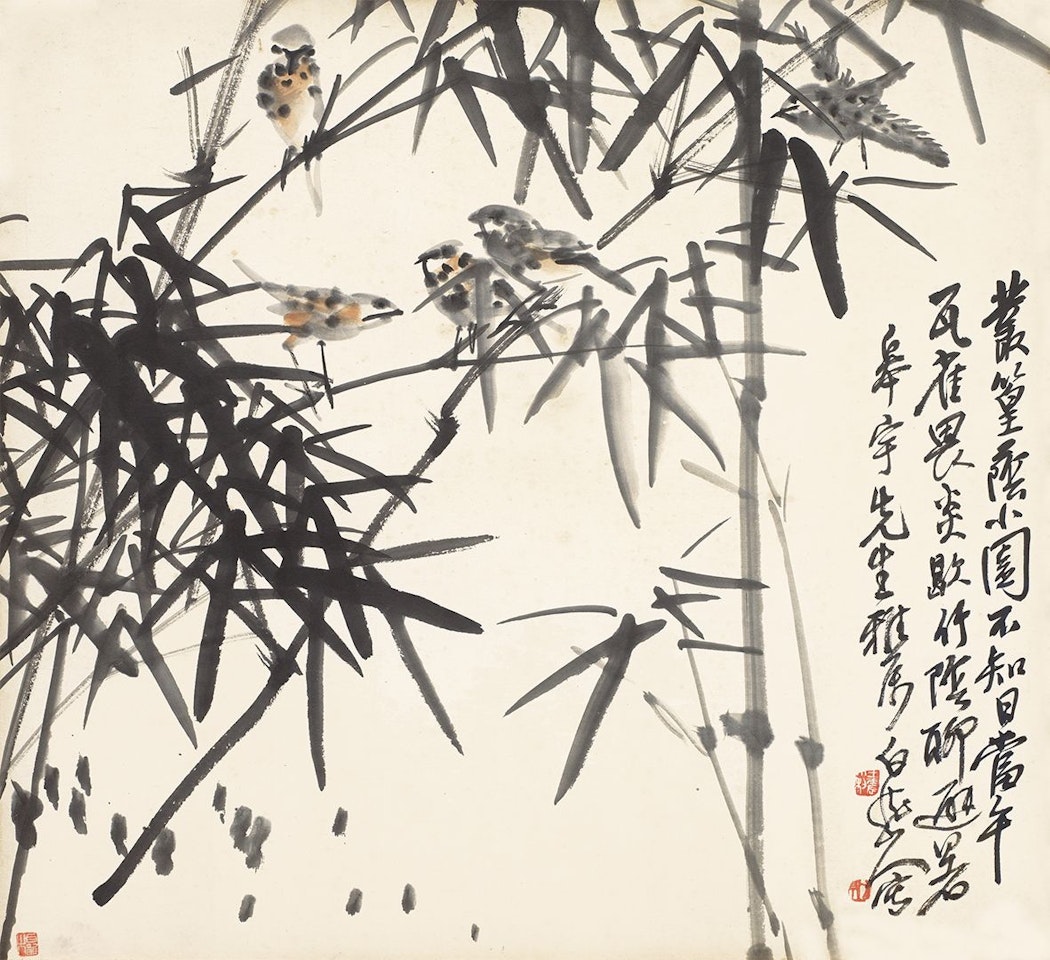 叢篁蔭小園不知日當午
瓦雀畏炎歊竹陰聊避暑
皋宇先生雅屬 白龍山人寫